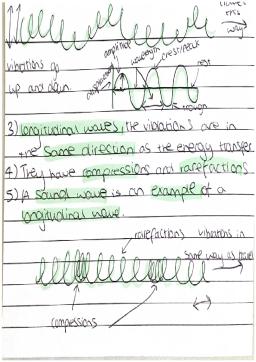 waves
this
way
vibrations go
up and down
amplitude
wavelength
crest/peak
rest
trough
3) longitudinal waves, the vibrations are in
the same direction as the energy transfer
4) They have compressions and rarefactions
5) A sound wave is an example of a
longitudinal wave.
rarefactions vibrations in
same way as travel
compressions